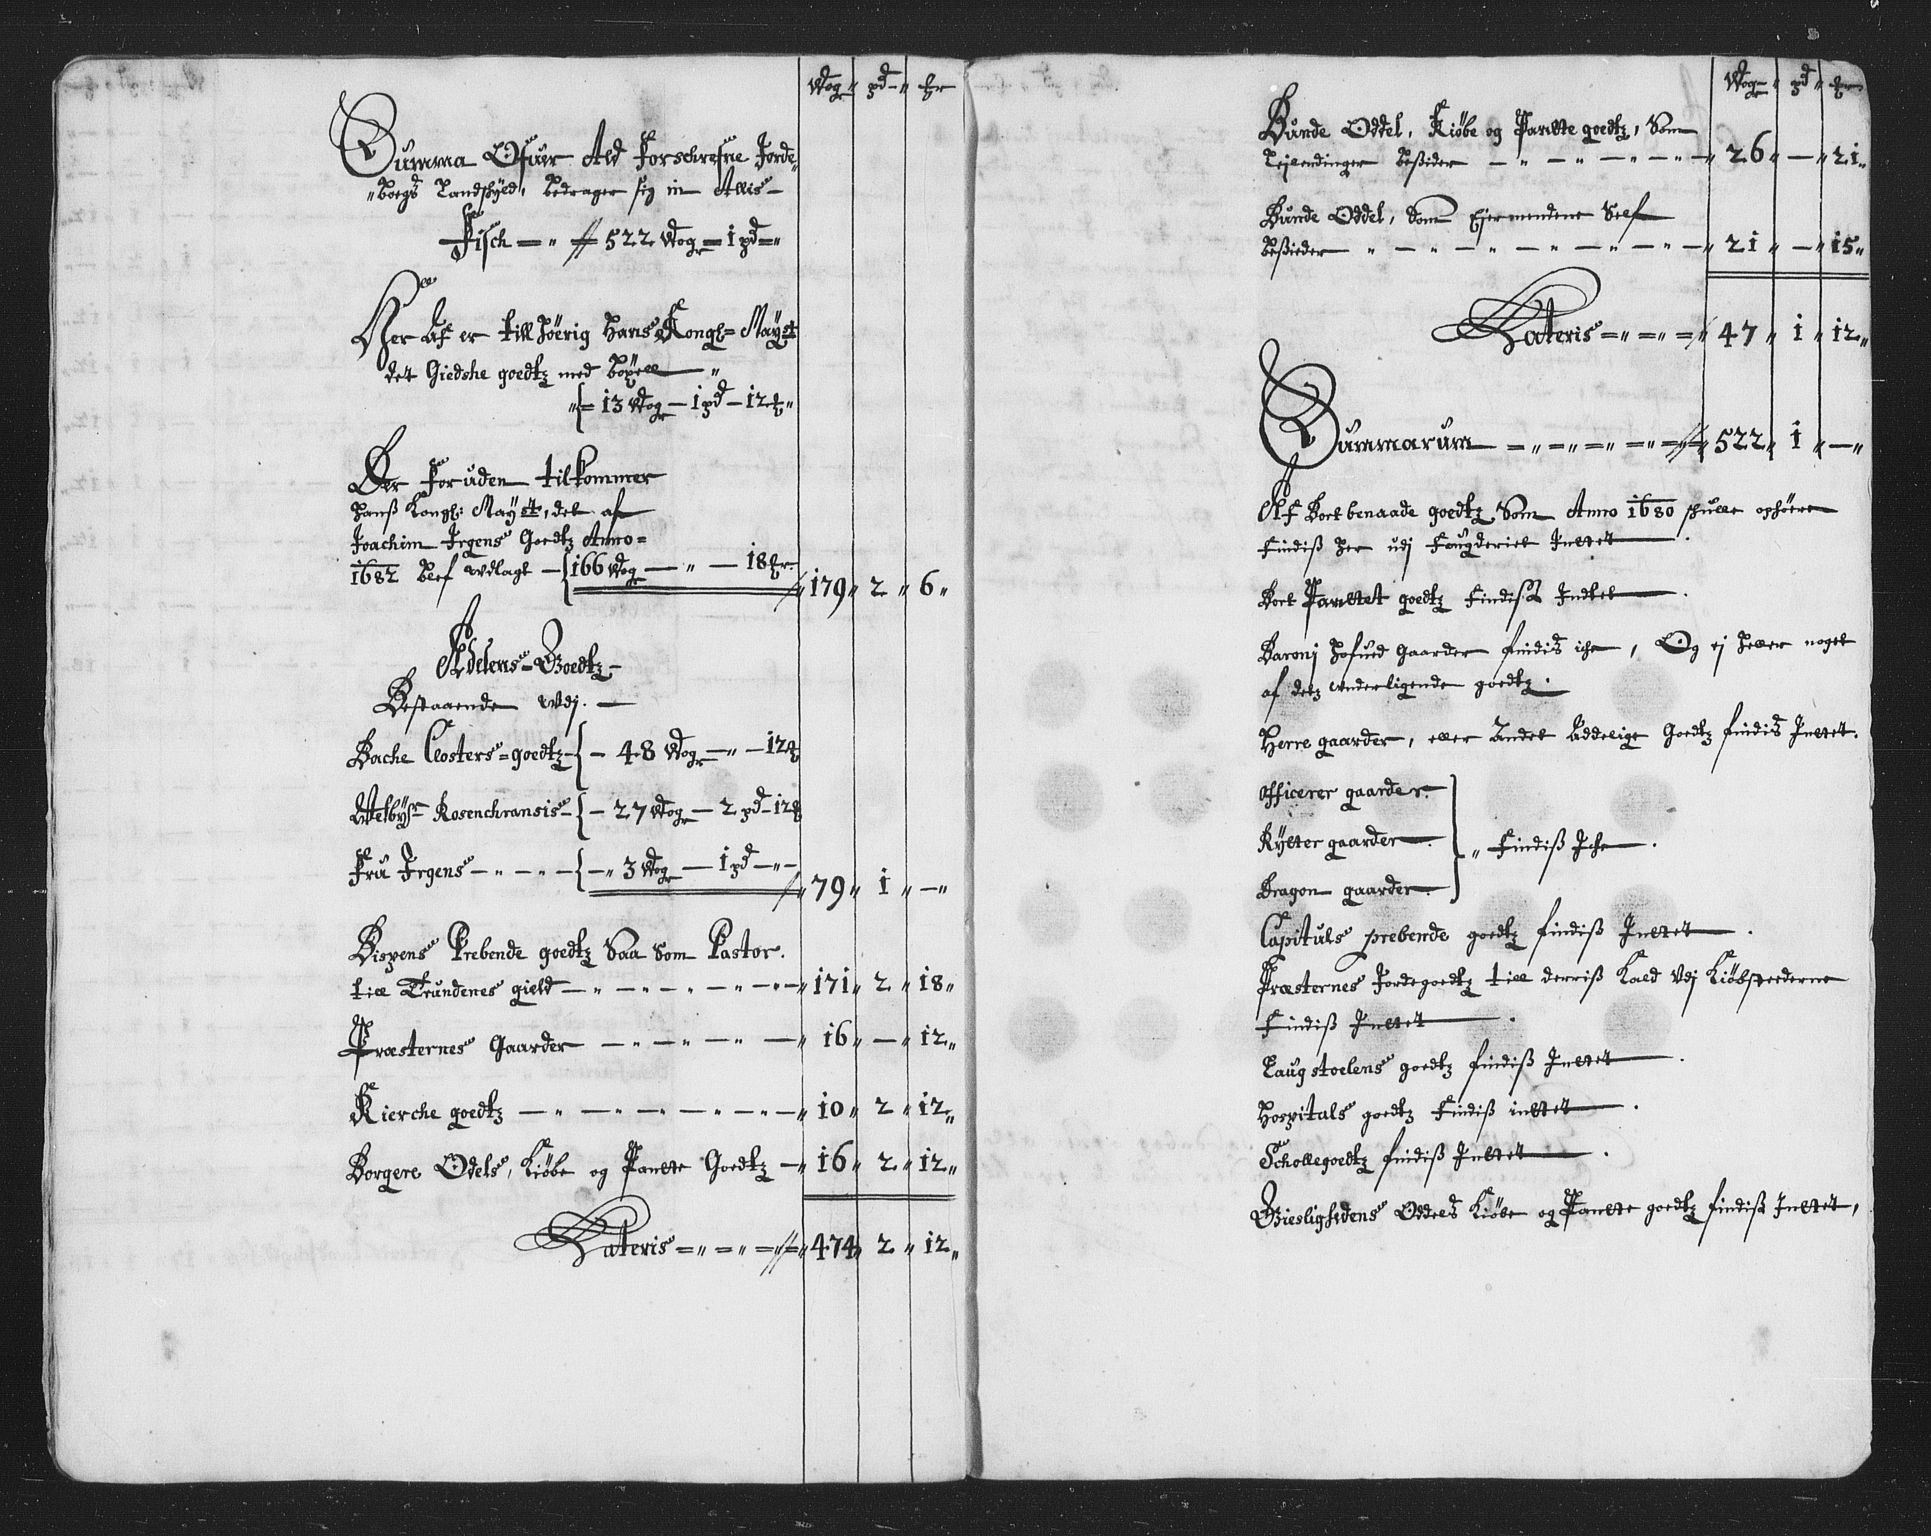 Wog " pd - " Mr
Summa Ofuer Ald Forschrefne Jorde"
"boegs Landskyld, bedrager sig in Allis -
Fisch - " - 522 Wog - 1 pd - "
Her Af er till høerig Hans Kongl= Mayst
det Giedshe goedtz med böxell - "
" 13 Wog - 1 pd - 12 "
Der Foruden tilkommer
Hanß Kongl: Mayst, det af
Joachim Irgens Goedtz Anno=
1682 blef Wdlagt - 166 Wog - " - 18 Mr " 179 " 2 " 6 "
Adelens Goedtz -
Bestaaende Wdj. -
Bache Closters = goedtz - 48 Wog - " - 12
Welbyr Rosenchransis - 27 Wog - 2 pd - 12
Fru Irgens - " - " - " 3 Wog - 1 pd - " - " 79 " 1 " - "
Bispens Prebende goedtz Saa Som Pastor.
till Trundenes gield - " - " - " - " - " 171 " 2 " 18 "
Præsternes Gaarder - " - " - " - " 16 " - " 12 "
Kierche goedtz - " - " - " - " - " 10 " 2 " 12 "
Borgere Odels, Kiöbe og Pantte Goedtz - " 16 " 2 " 12 "
Lateris = " = " = " 474 " 2 " 12 "
Wog " pd " Mr
Bunde Oddel, Kiöbe og Pantte goedtz, Som
Leylendinger beßider - " - " - " - " - " 26 " - " 21 "
Bunde Oddel, Som Ejermendene Self
beßieder " - " - " - " - " - " - " 21 " - " 15 "
Lateris = " = " = " 47 " 1 " 12 "
Summarum = " = " = " = " = " 522 " 1 " - "
Af Bortbenaade goedtz Som Anno 1680 skulle ophöere
Findiß her udj Fougderiet Inttet.
Bort Panttet goedtz Findiß Indtet.
Baronj Hofued Gaarder findis iche, Og ej heller noget
af detz underligende goedtz.
Herre gaarder, eller Andet Addelige Goedtz findis Inttet.
Officerer gaarder.
Rytter gaarder. " Findiß Iche.
Dragon gaarder.
Capituls prebende goedtz findiß Inttet.
Præsternes Jordegoedtz till derriß Kald Vdj Kiöbstederne
Findiß Inttet.
Laugstoelens goedtz findiß Inttet.
Hospitals goedtz Findiß inttet.
Scholle goedtz findiß Inttet.
Giestlighedens Oddels Kiöbe og Pantte goedtz findiß Inttet,